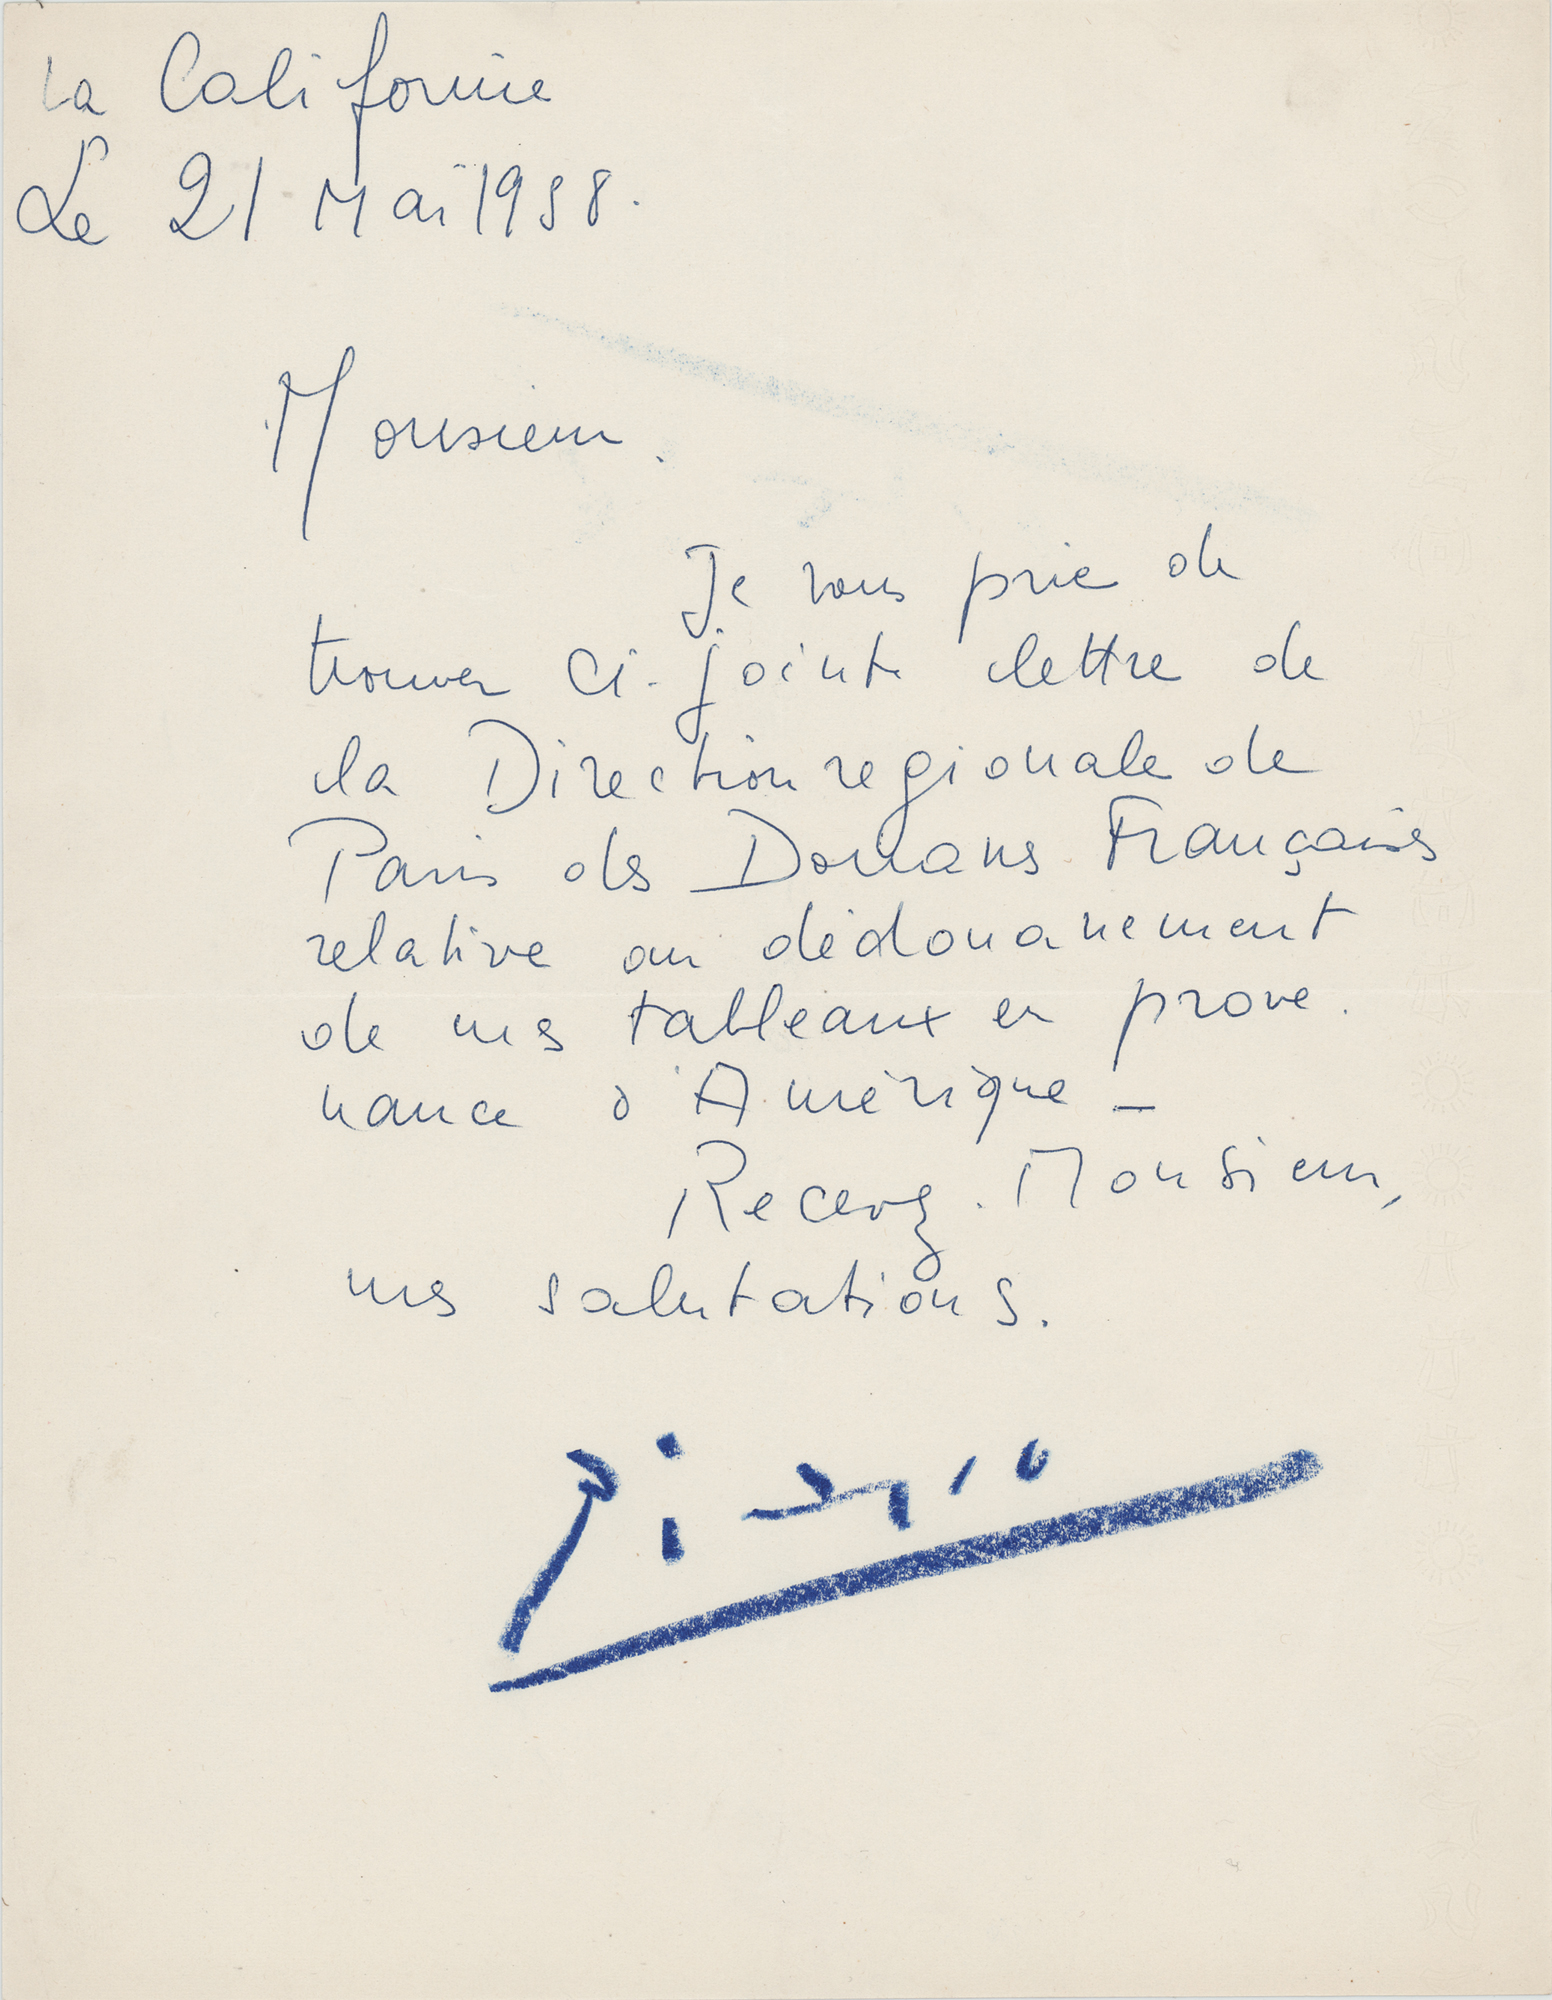 La Californie
Le 21 Mai 1958.
Monsieur.
Je vous prie de
trouver ci-jointe lettre de
la Direction regionale de
Paris des Douanes Françaises
relative au dédouanement
de mes tableaux en prove-
nance d'Amérique -
Recevez. Monsieur,
mes salutations.
Picasso